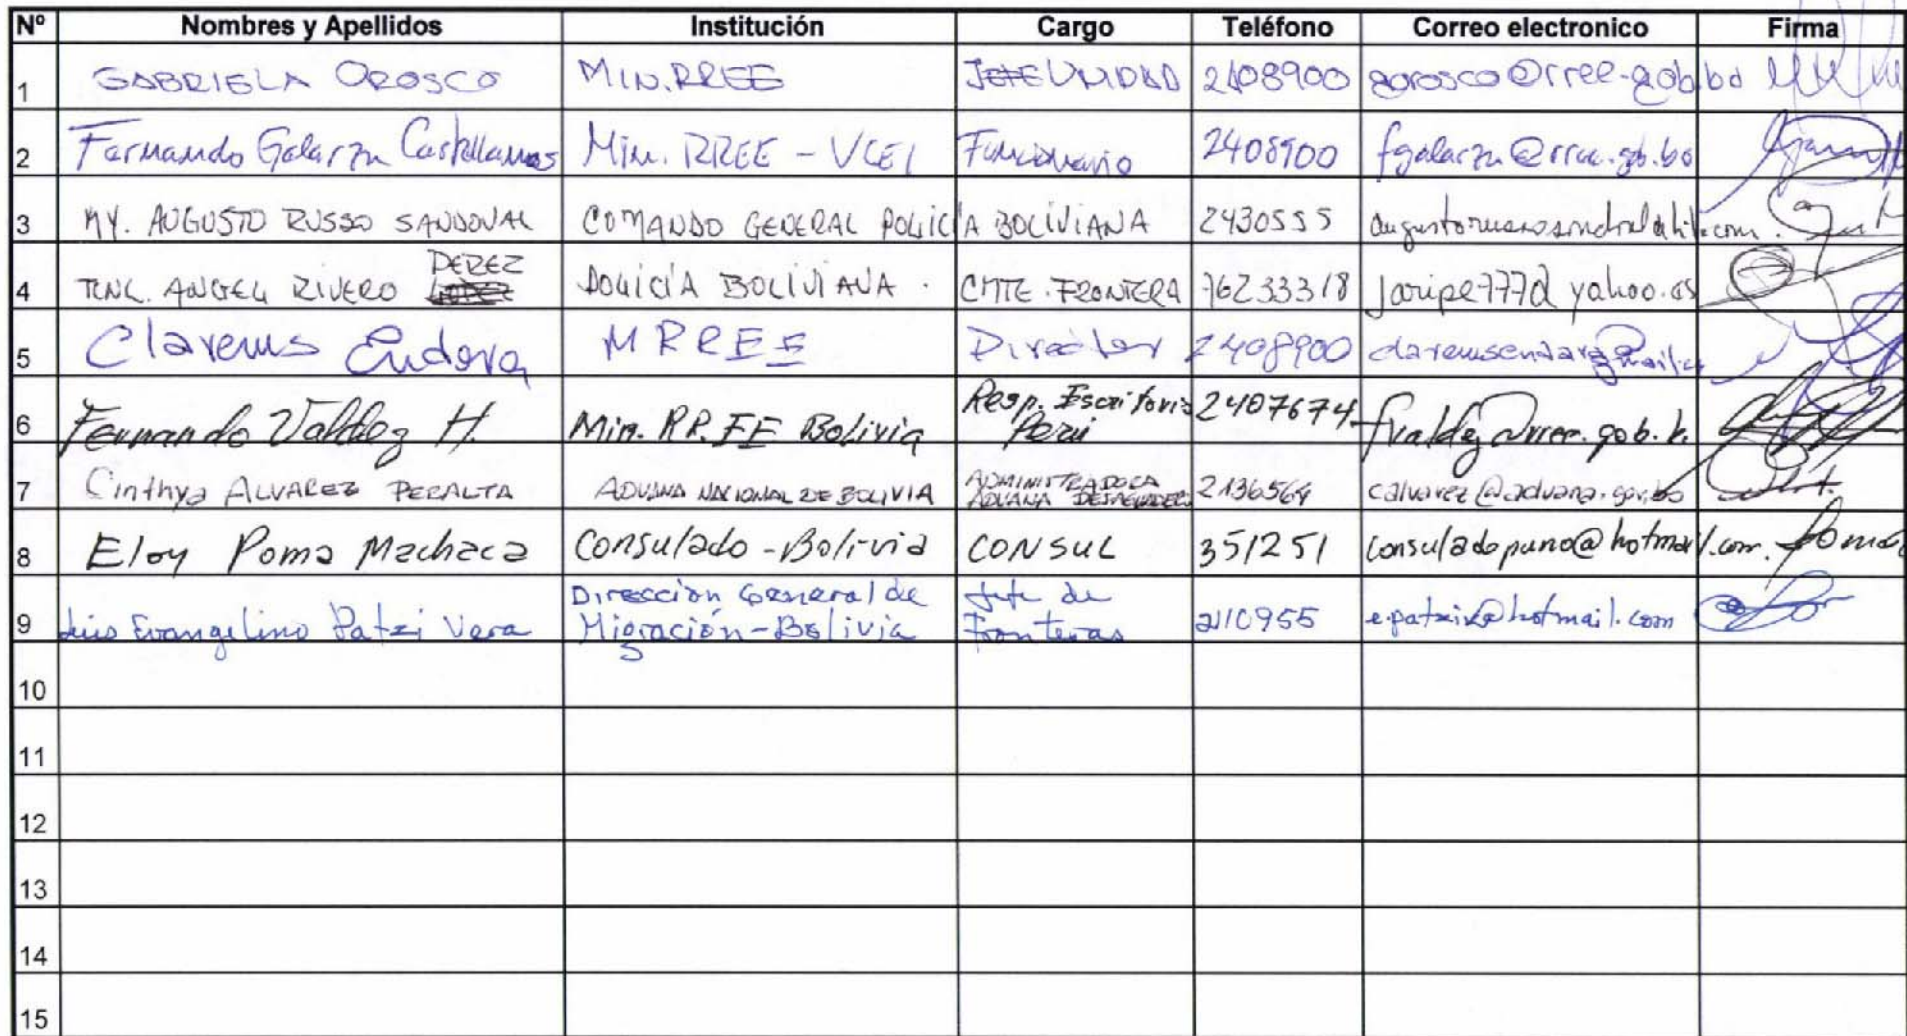 Nº Nombres y Apellidos Institución Cargo Teléfono Correo electronico Firma
1 GABRIELA OROSCO MIN.RREE JEFE UNIDAD 2408900 gorosco@rree.gob.bo
2 Fernando Galarza Castellanos Min. RREE - VCEI Funcionario 2408900 fgalarza@rree.gob.bo
3 MY. AUGUSTO RUSSO SANDOVAL COMANDO GENERAL POLICIA BOLIVIANA 2430555
4 TCNL. ANGEL RIVERO PEREZ POLICIA BOLIVIANA. CMTE. FRONTERA 76233318 jaripe777@yahoo.es
5 Clarems Endara MRREE Director 2408900
6 Fernando Valdez H. Min. RR.EE Bolivia Resp. Escritorio Perú 2407674 fvaldez@rree.gob.b.
7 Cinthya ALVAREZ PERALTA ADUANA NACIONAL DE BOLIVIA ADMINISTRADORA ADUANA DESAGUADERO 2136564 calvarez@aduana.gov.bo
8 Eloy Poma Machaca Consulado - Bolivia CONSUL 351251 consuladopuno@hotmail.com.
9 Luis Evangelino Patzi Vera Dirección General de Migración - Bolivia Jefe de Fronteras 2110955 e.patziv@hotmail.com
10
11
12
13
14
15